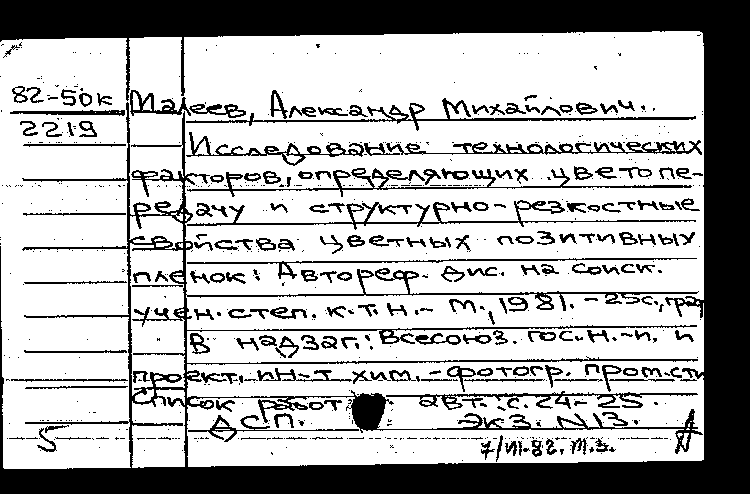 82-50к Малеев, Александр Михайлович.
2219
Исследование технологических
факторов, определяющих цветопе-
редачу и структурно-резкостные
свойства цветных позитивных
пленок: Автореф. дис. на соиск.
учен. степ. к.т.н. - М., 1981. - 25с., граф
В надзаг.: Всесоюз. гос. н.-и. и
проект. ин-т хим.-фотогр. пром.сти
Список работ авт.: с. 24-25.
ДСП. Экз. N13.
5